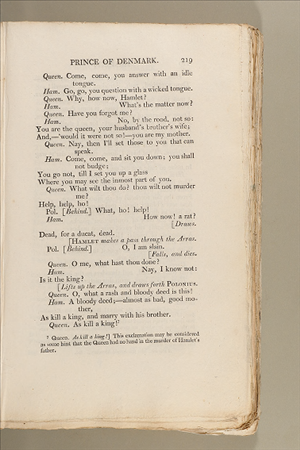 PRINCE OF DENMARK. 219
Queen. Come, come, you answer with an idle
tongue.
Ham. Go, go, you question with a wicked tongue.
Queen. Why, how now, Hamlet?
Ham. What's the matter now?
Queen. Have you forgot me?
Ham. No, by the rood, not so:
You are the queen, your husband's brother's wife;
And,—'would it were not so!—you are my mother.
Queen. Nay, then I'll set those to you that can
speak.
Ham. Come, come, and sit you down; you shall
not budge;
You go not, till I set you up a glass
Where you may see the inmost part of you.
Queen. What wilt thou do? thou wilt not murder
me?
Help, help, ho!
Pol. [Behind.] What, ho! help!
Ham. How now! a rat?
[Draws.
Dead, for a ducat, dead.
[HAMLET makes a pass through the Arras.
Pol. [Behind.] O, I am slain.
[Falls, and dies.
Queen. O me, what hast thou done?
Ham. Nay, I know not:
Is it the king?
[Lifts up the Arras, and draws forth POLONIUS.
Queen. O, what a rash and bloody deed is this!
Ham. A bloody deed;—almost as bad, good mo-
ther,
As kill a king, and marry with his brother.
Queen. As kill a king!⁷
⁷ Queen. As kill a king!] This exclamation may be considered
as some hint that the Queen had no hand in the murder of Hamlet's
father.